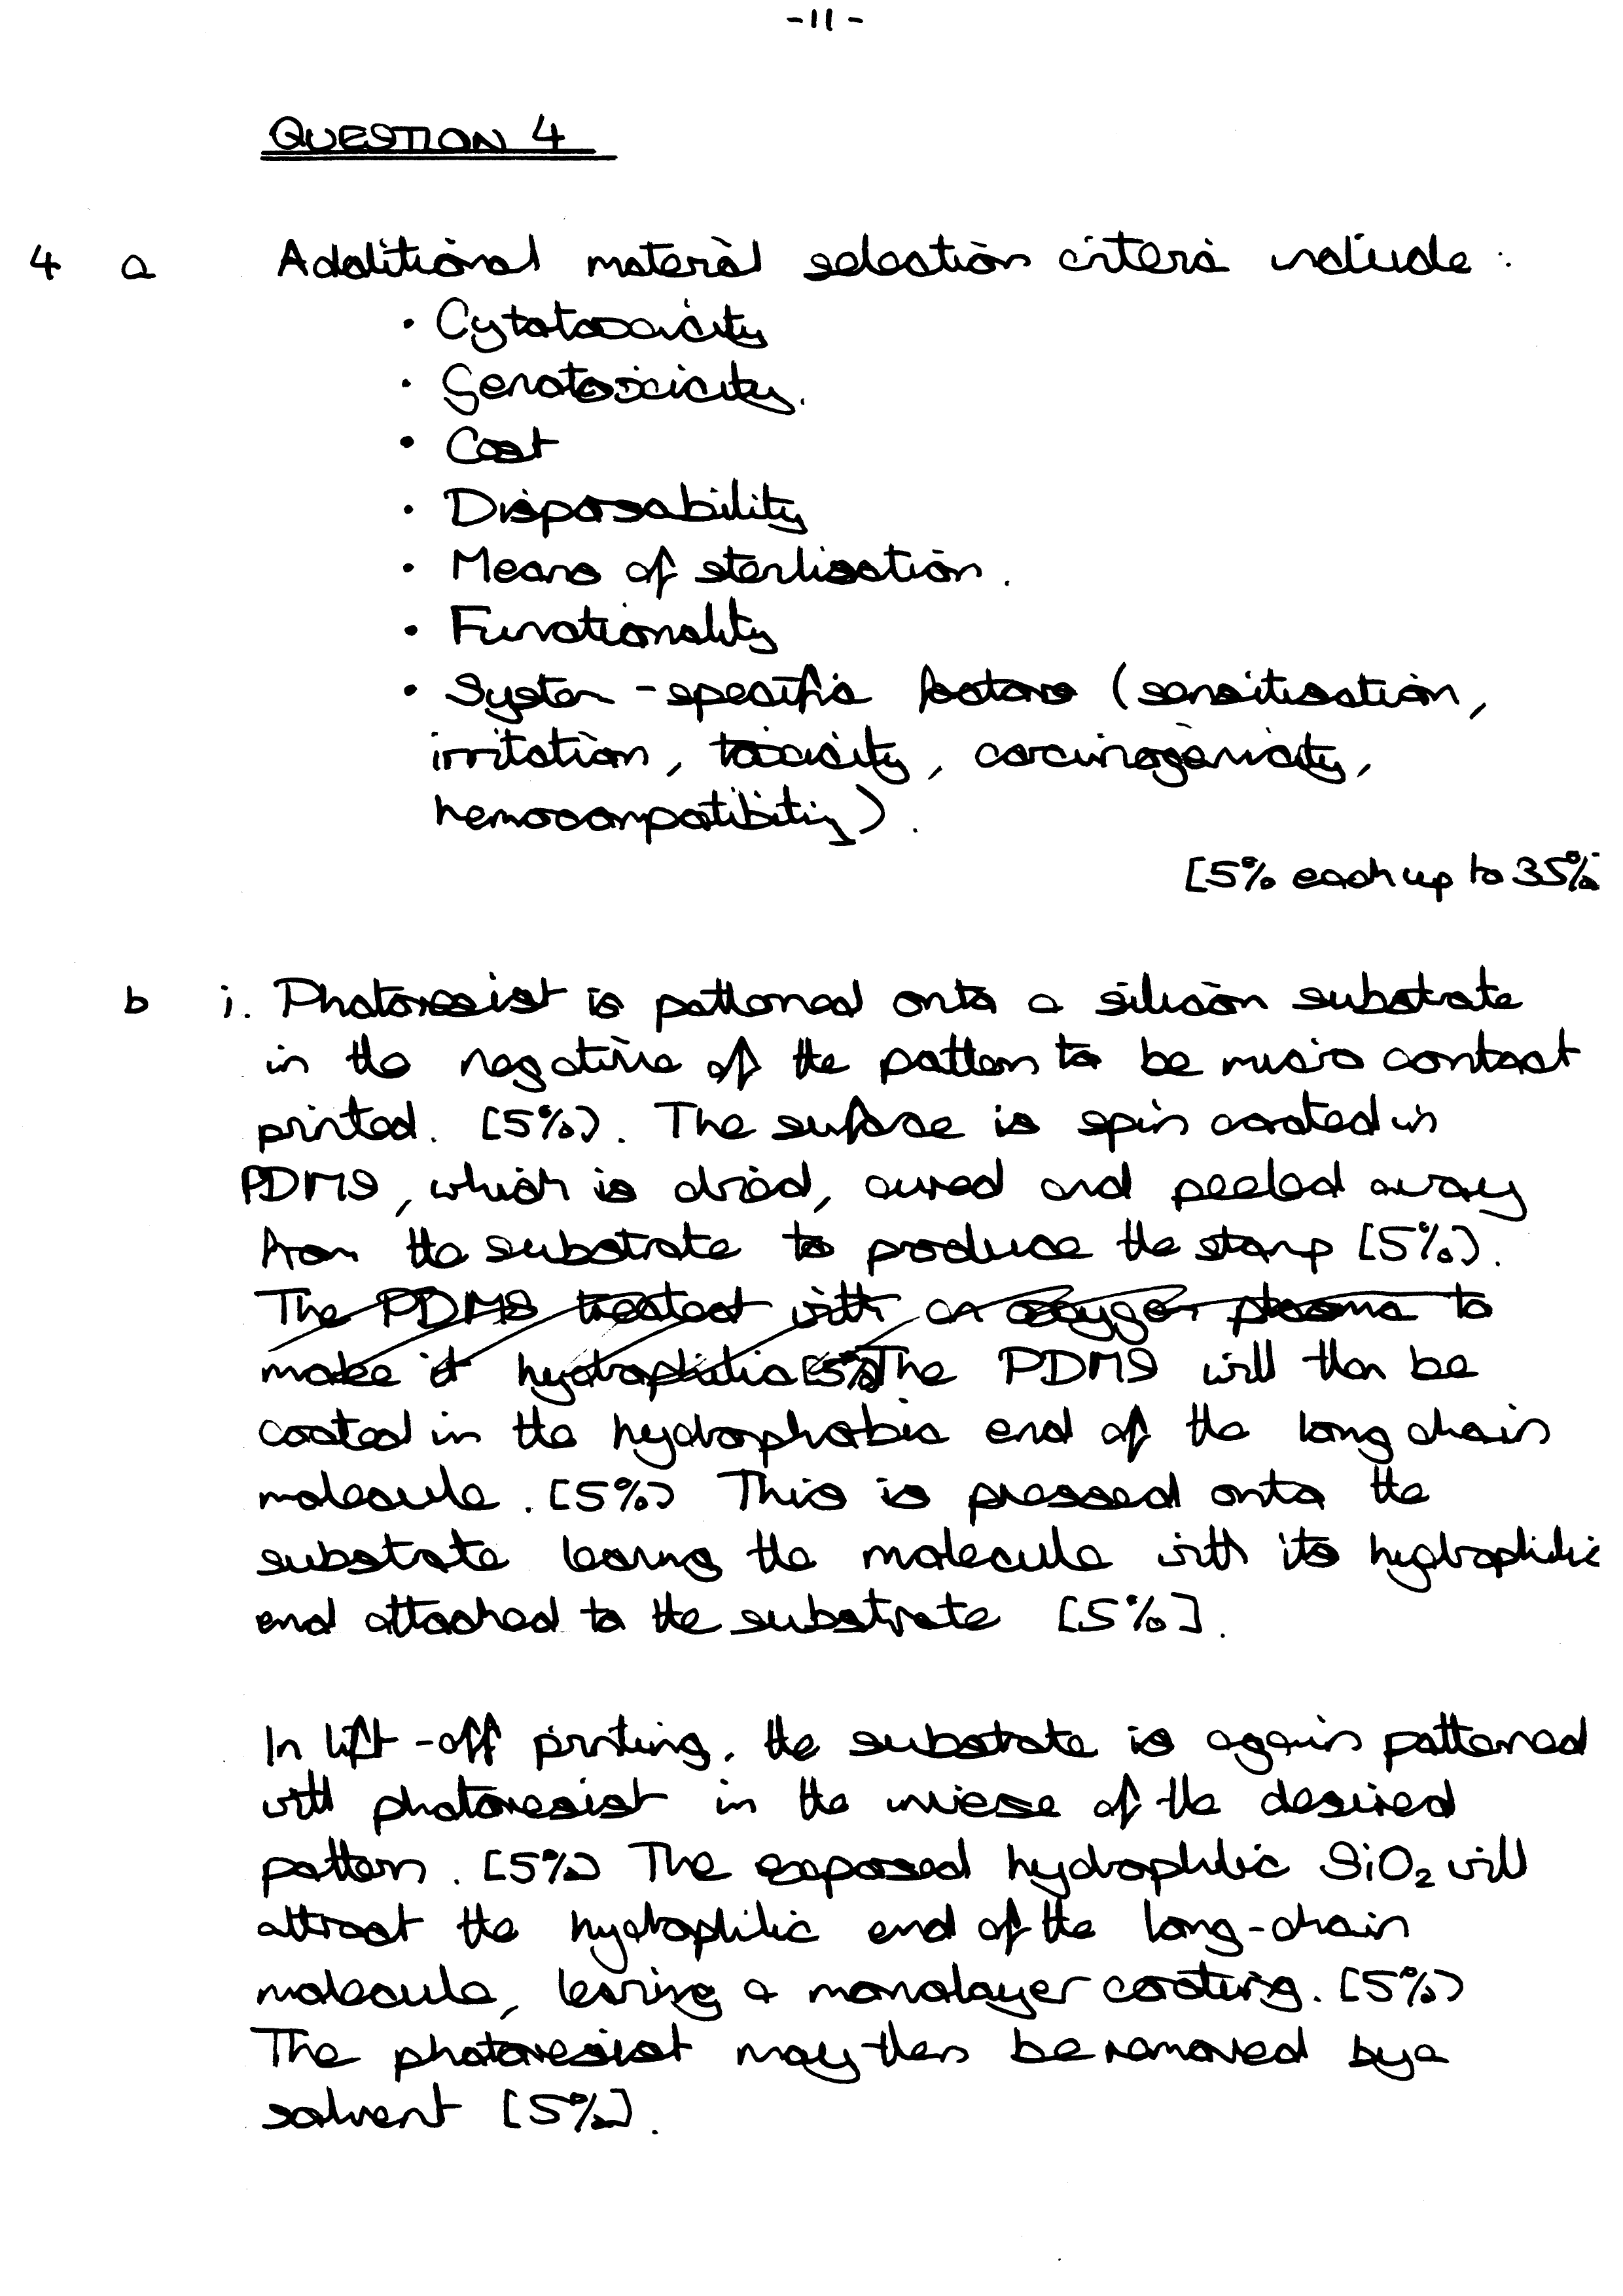 -11-
QUESTION 4
4 a Additional material selection criteria include :
• Cytotoxicity
• Genotoxicity.
• Cost
• Disposability
• Means of sterilisation.
• Functionality
• System-specific factors (sensitisation,
irritation, toxicity, carcinogenicity,
hemocompatibility).
[5% each up to 35%
b i. Photoresist is patterned onto a silicon substrate
in the negative of the pattern to be micro contact
printed. [5%]. The surface is spin coated in
PDMS, which is dried, cured and peeled away
from the substrate to produce the stamp [5%].
The PDMS treated with an oxygen plasma to
make it hydrophilic [5%] The PDMS will then be
coated in the hydrophobic end of the long chain
molecule. [5%] This is pressed onto the
substrate leaving the molecule with its hydrophilic
end attached to the substrate [5%].
In lift-off printing, the substrate is again patterned
with photoresist in the inverse of the desired
pattern. [5%] The exposed hydrophilic SiO₂ will
attract the hydrophilic end of the long-chain
molecule, leaving a monolayer coating. [5%]
The photoresist may then be removed by a
solvent [5%].